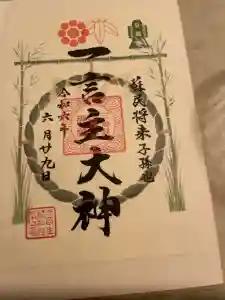 蘇民将来子孫也
一言主大神
令和六年
六月廿九日